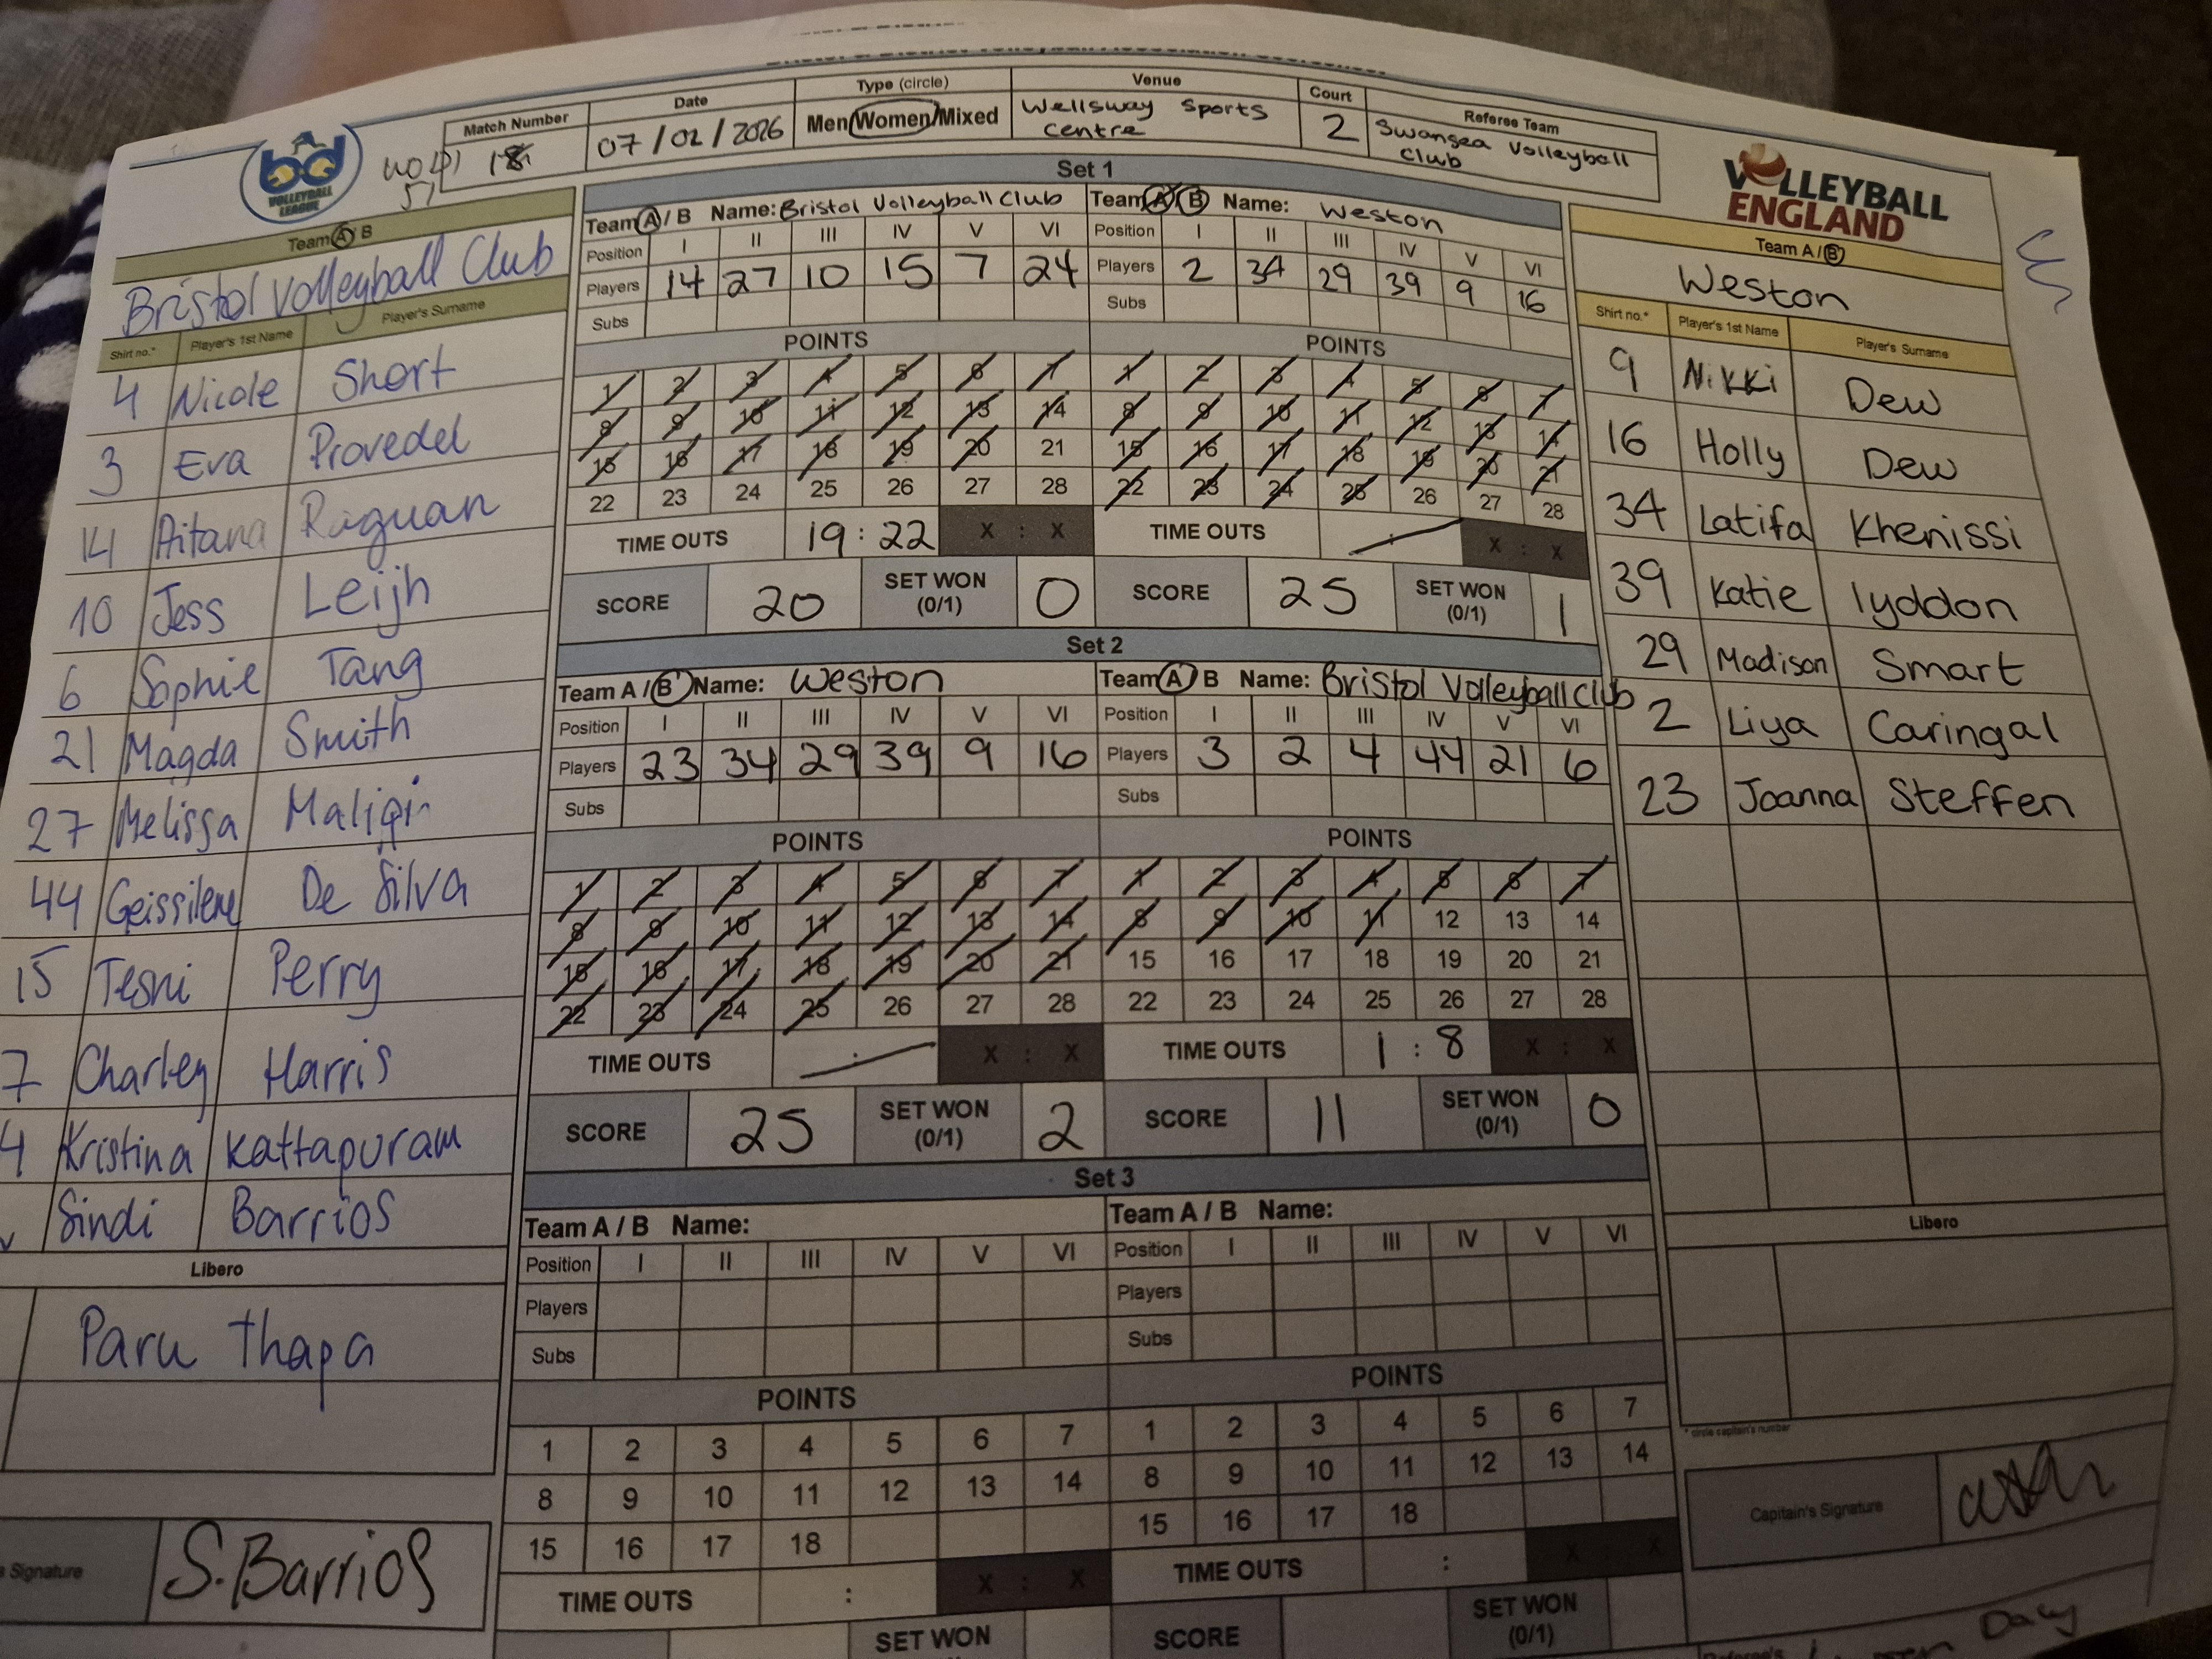 Match Number
18
Date
07/02/2026
Type (circle)
Men/Women/Mixed
Venue
Wellsway Sports
Centre
Court
2
Referee Team
Swansea Volleyball
Club
bd
VOLLEYBALL
LEAGUE
51
VOLLEYBALL
ENGLAND
Team A / B
Bristol Volleyball Club
Shirt no.* Player's 1st Name Player's Surname
4 Nicole Short
3 Eva Provedel
14 Aitana Raguan
10 Jess Leijh
6 Sophie Tang
21 Magda Smith
27 Melissa
44 Geissilene De Silva
15 Tesni Perry
7 Charley Harris
4 Kristina Kattapuram
Sindi Barrios
Libero
Paru Thapa
Signature
S.Barrios
Set 1
Team A / B Name: Bristol Volleyball Club
Position I II III IV V VI
Players 14 27 10 15 7 24
Subs
POINTS
1 2 3 4 5 6 7
8 9 10 11 12 13 14
15 16 17 18 19 20 21
22 23 24 25 26 27 28
TIME OUTS 19 : 22 X : X
SCORE 20 SET WON (0/1) 0
Team A / B Name: Weston
Position I II III IV V VI
Players 2 34 29 39 9 16
Subs
POINTS
1 2 3 4 5 6 7
8 9 10 11 12 13 14
15 16 17 18 19 20 21
22 23 24 25 26 27 28
TIME OUTS : X : X
SCORE 25 SET WON (0/1) 1
Set 2
Team A / B Name: Weston
Position I II III IV V VI
Players 23 34 29 39 9 16
Subs
POINTS
1 2 3 4 5 6 7
8 9 10 11 12 13 14
15 16 17 18 19 20 21
22 23 24 25 26 27 28
TIME OUTS : X : X
SCORE 25 SET WON (0/1) 2
Team A / B Name: Bristol Volleyball Club
Position I II III IV V VI
Players 3 2 4 44 21 6
Subs
POINTS
1 2 3 4 5 6 7
8 9 10 11 12 13 14
15 16 17 18 19 20 21
22 23 24 25 26 27 28
TIME OUTS 1 : 8 X : X
SCORE 11 SET WON (0/1) 0
Set 3
Team A / B Name:
Position I II III IV V VI
Players
Subs
POINTS
1 2 3 4 5 6 7
8 9 10 11 12 13 14
15 16 17 18
TIME OUTS : X : X
SET WON
Team A / B Name:
Position I II III IV V VI
Players
Subs
POINTS
1 2 3 4 5 6 7
8 9 10 11 12 13 14
15 16 17 18
TIME OUTS : X : X
SCORE SET WON (0/1)
Team A / B
Weston
Shirt no.* Player's 1st Name Player's Surname
9 Nikki Dew
16 Holly Dew
34 Latifa Khenissi
39 Katie lyddon
29 Madison Smart
2 Liya Caringal
23 Joanna Steffen
Libero
* circle captain's number
Capitain's Signature
Referee's